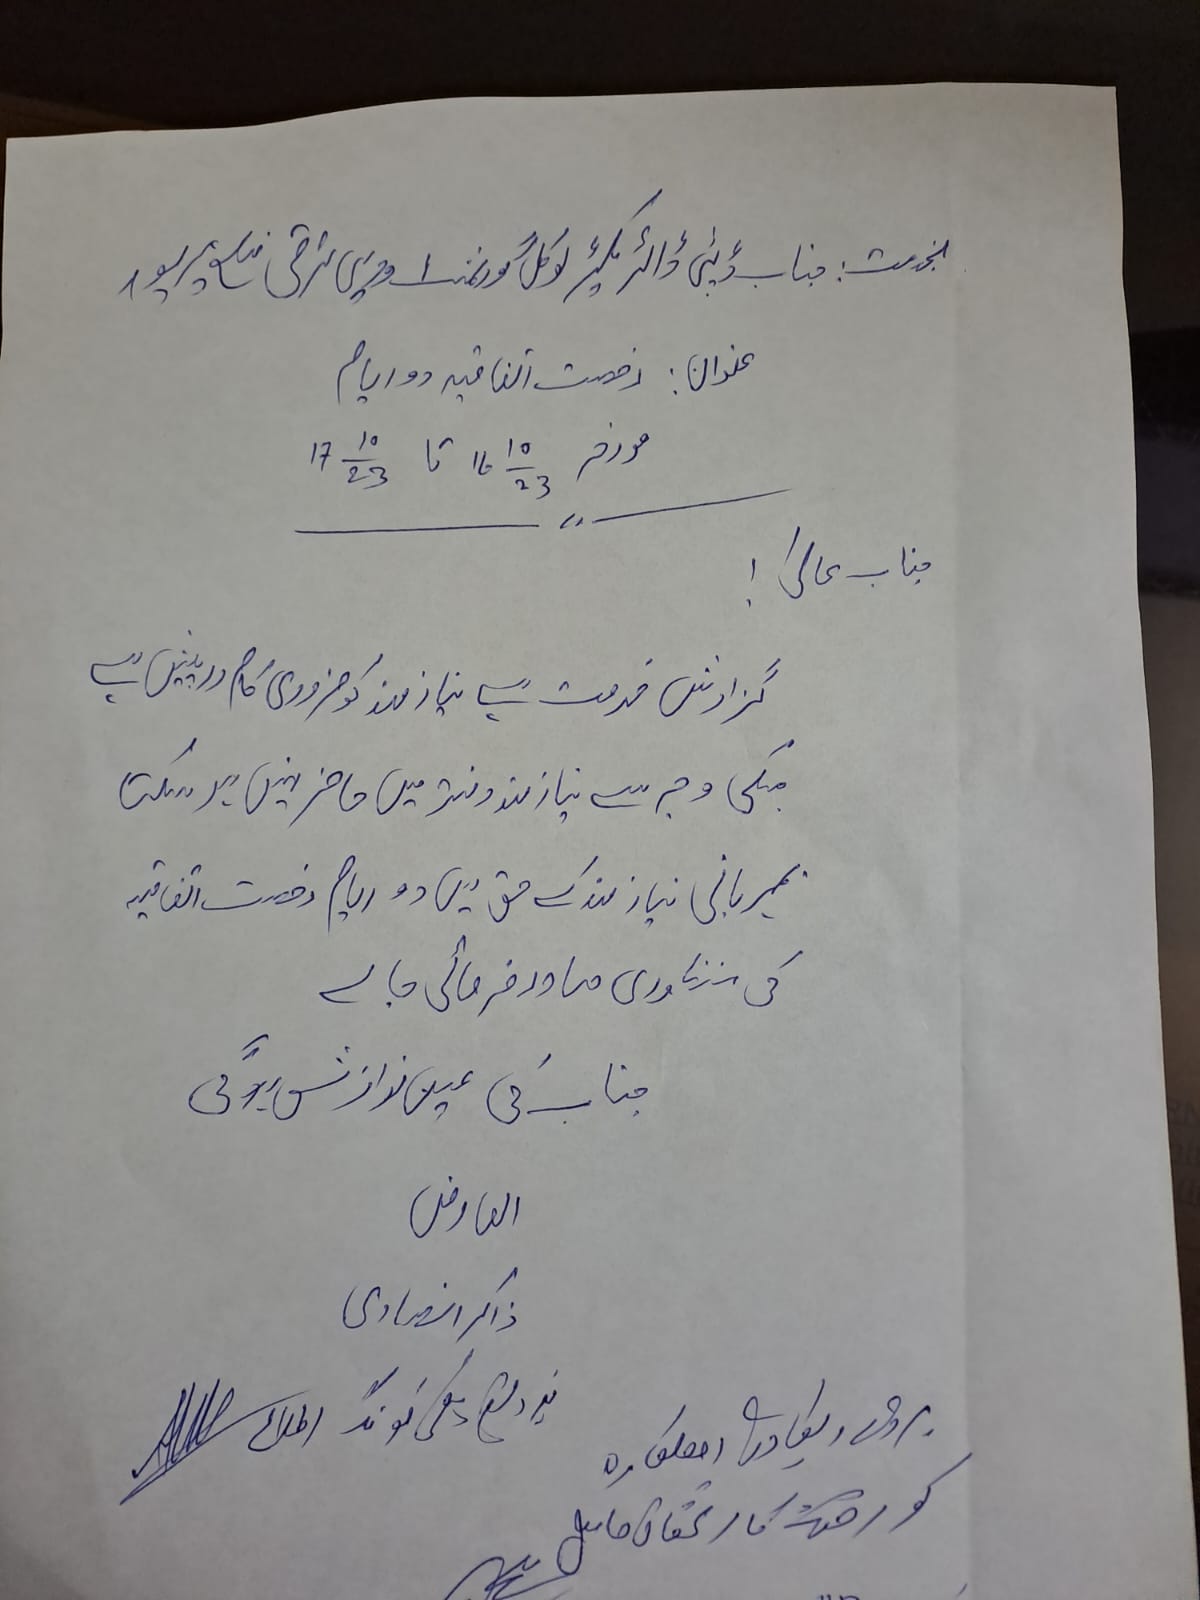 بخدمت: جناب ڈپٹی ڈائریکٹر لوکل گورنمنٹ اودیہی ترقی ضلع
عنوان: رخصت اتفاقیہ دو ایام
مورخہ 16 10/23 تا 17 10/23
جناب عالی!
گزارش خدمت ہے نیازمند کو ضروری کام درپیش ہے
جسکی وجہ سے نیازمند دفتر میں حاضر نہیں ہو سکتا
بمہربانی نیازمند کے حق میں دو ایام رخصت اتفاقیہ
کی منظوری صادر فرمائی جائے
جناب کی عین نوازش ہوگی
العارض
ذاکر انصاری
بروئے ریکارڈ
کو رخصت کا استحقاق حاصل